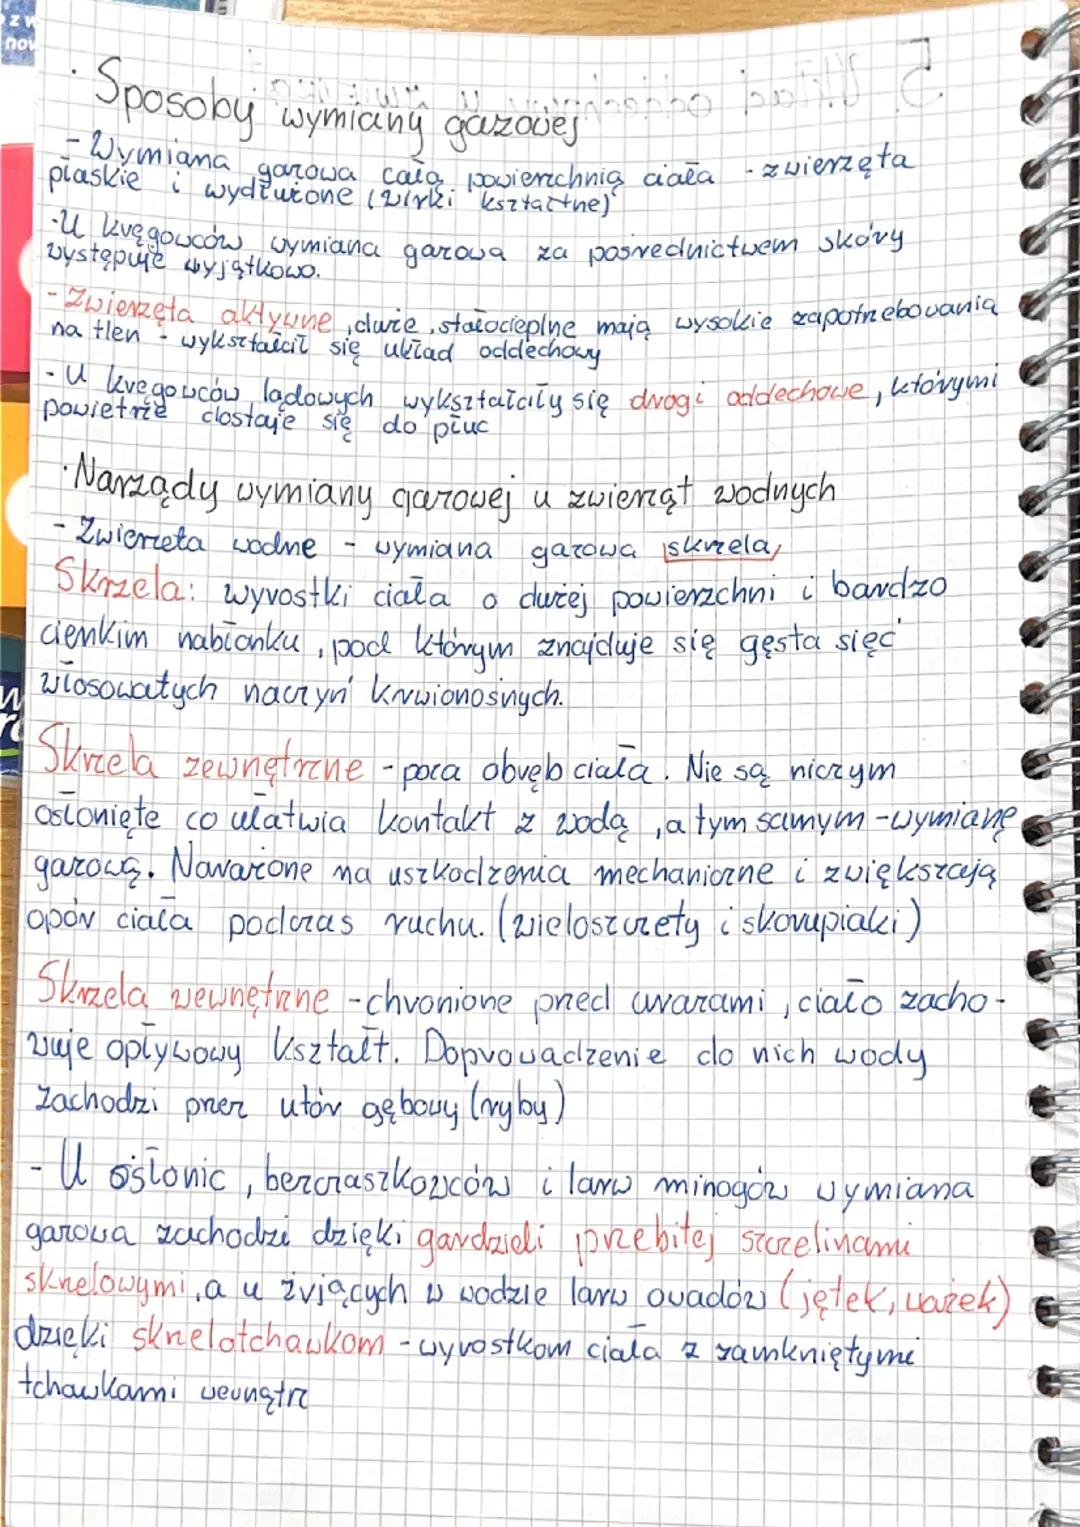 z w
now
· Sposoby wymiany gazowej
- Wymiana gazowa całą powierzchnią ciała - zwierzęta
płaskie i wydłużone (wirki kształtne)
- U kręgowców wymiana gazowa za pośrednictwem skóry
występuje wyjątkowo.
- Zwierzęta aktywne, duże, stałocieplne mają wysokie zapotrzebowania
na tlen - wykształcił się układ oddechowy
- U kręgowców lądowych wykształciły się drogi oddechowe, którymi
powietrze dostaje się do płuc
· Narządy wymiany gazowej u zwierząt wodnych
- Zwierzeta wodne - wymiana gazowa skrzela,
Skrzela: wyrostki ciała o dużej powierzchni i bardzo
cienkim nabłonku, pod którym znajduje się gęsta sięć
włosowatych naczyń krwionośnych.
Skrzela zewnętrzne - poza obręb ciała. Nie są niczym
osłonięte co ułatwia kontakt z wodą, a tym samym - wymianę
gazową. Narażone na uszkodzenia mechaniczne i zwiększają
opór ciała podczas ruchu. (wieloszczety i skorupiaki)
Skrzela wewnętrzne - chronione przed urazami, ciało zacho-
wuje opływowy kształt. Doprowadzenie do nich wody
zachodzi przez otwór gębowy (ryby)
- U osłonic, bezczaszkowców i larw minogów wymiana
gazowa zachodzi dzięki gardzieli przebitej szczelinami
skrzelowymi, a u żyjących w wodzie larw owadów (jętek, ważek)
dzięki skrzelotchawkom - wyrostkom ciała z zamkniętymi
tchawkami wewnątrz